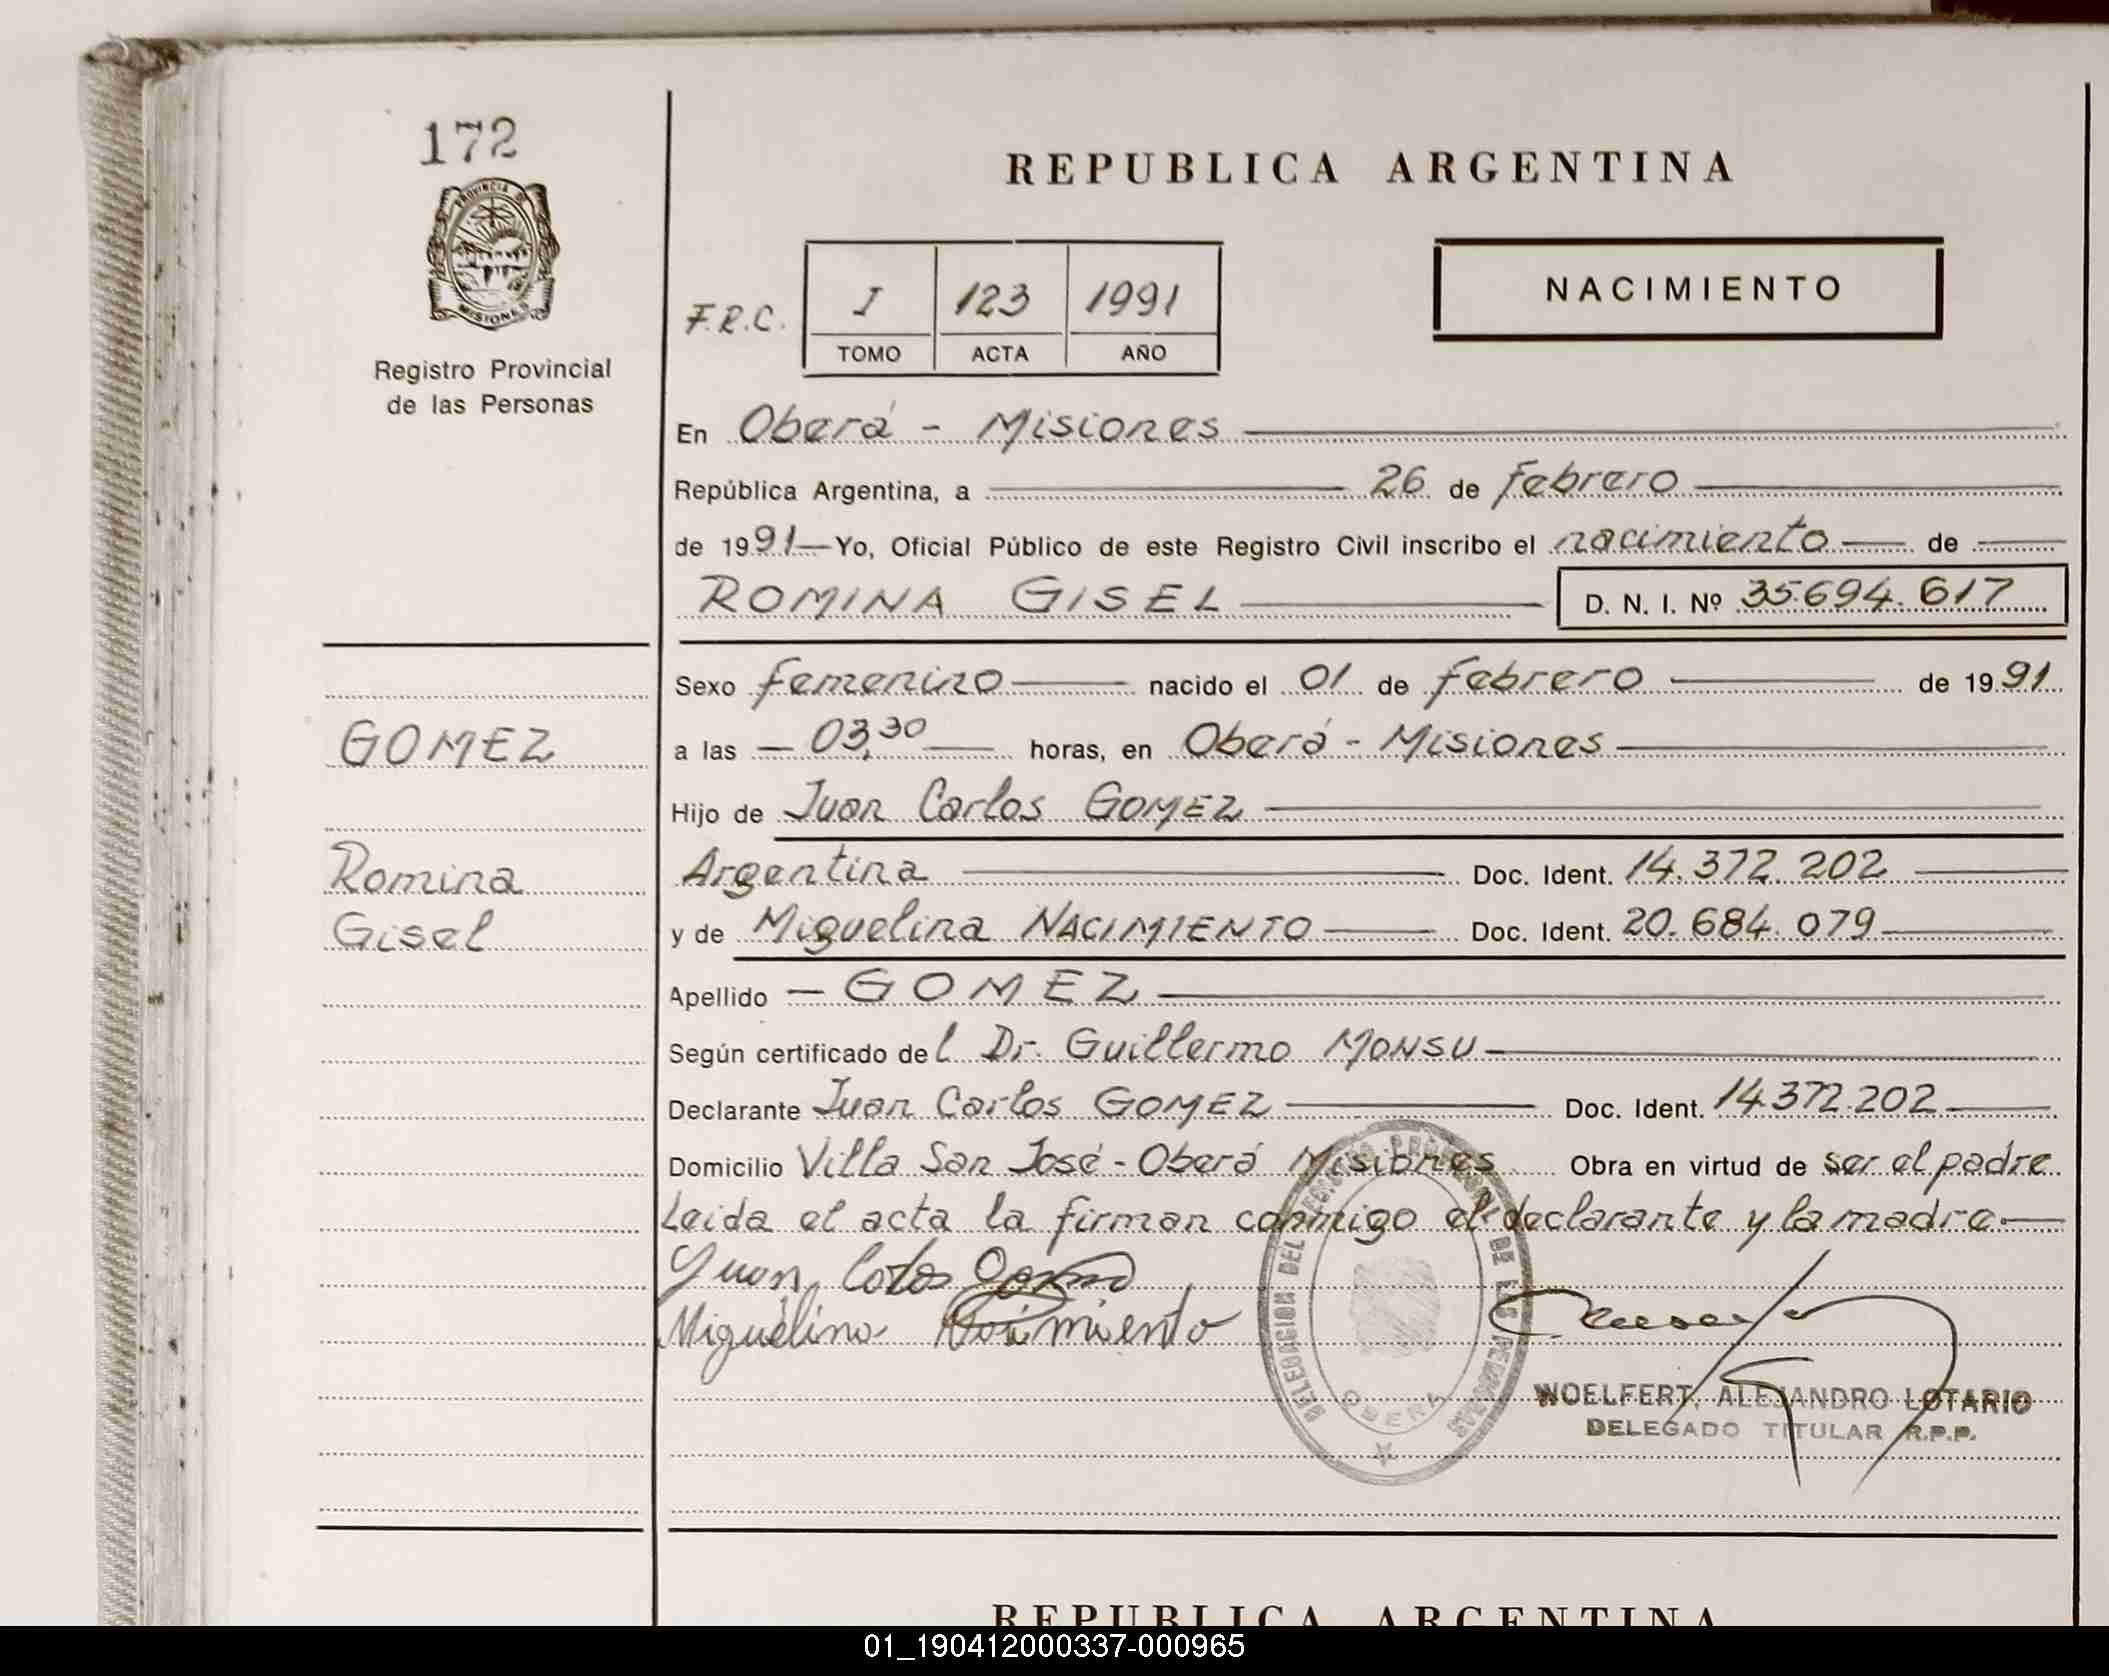 172
PROVINCIA DE
MISIONES
Registro Provincial
de las Personas
GOMEZ
Romina
Gisel
REPUBLICA ARGENTINA
F.R.C.
I 123 1991
TOMO ACTA AÑO
NACIMIENTO
En Oberá - Misiones
República Argentina, a 26 de Febrero
de 1991 Yo, Oficial Público de este Registro Civil inscribo el nacimiento de
ROMINA GISEL D. N. I. Nº 35.694.617
Sexo Femenino nacido el 01 de Febrero de 1991
a las 03,30 horas, en Oberá - Misiones
Hijo de Juan Carlos GOMEZ
Argentina Doc. Ident. 14.372.202
y de Miguelina NACIMIENTO Doc. Ident. 20.684.079
Apellido GOMEZ
Según certificado del Dr. Guillermo MONSU
Declarante Juan Carlos GOMEZ Doc. Ident. 14.372.202
Domicilio Villa San José - Oberá Misiones Obra en virtud de ser el padre
Leida el acta la firman conmigo el declarante y la madre.
Juan Carlos Gomez
Miguelina Nacimiento
DELEGACION DEL REGISTRO PROVINCIAL DE LAS PERSONAS
OBERA
WOELFERT, ALEJANDRO LOTARIO
DELEGADO TITULAR R.P.P.
REPUBLICA ARGENTINA
01_190412000337-000965